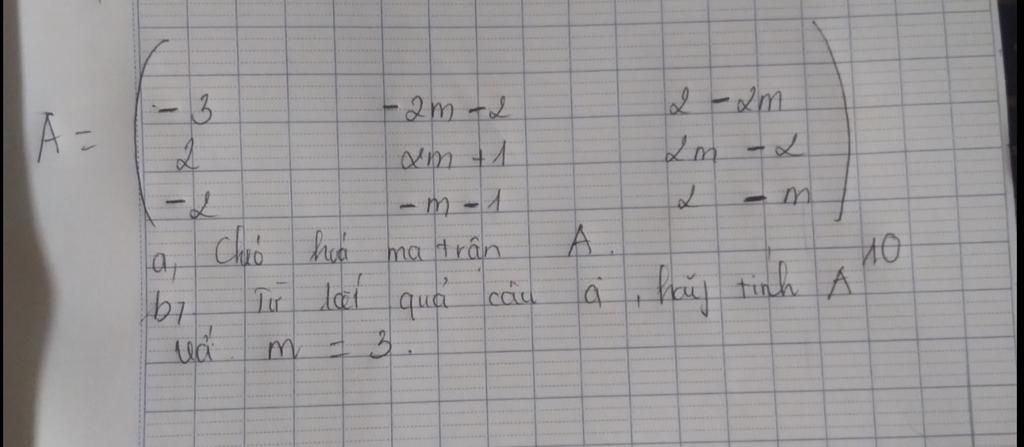 - 3 -2m -2 2 -2m
A = 2 2m +1 2m - 2
-2 -m -1 2 - m
a, Chéo hoá ma trận A.
b, Từ kết quả câu a, hãy tính A^10
với m = 3.